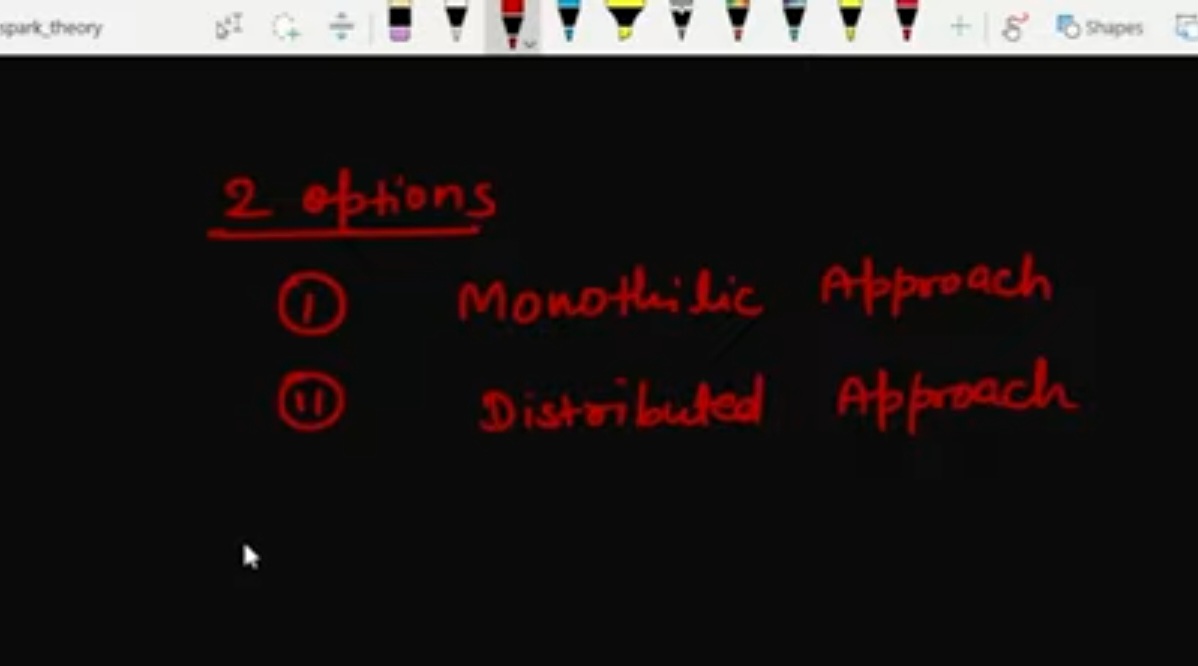 spark_theory
Shapes
2 options
① Monothilic Approach
⑪ Distributed Approach